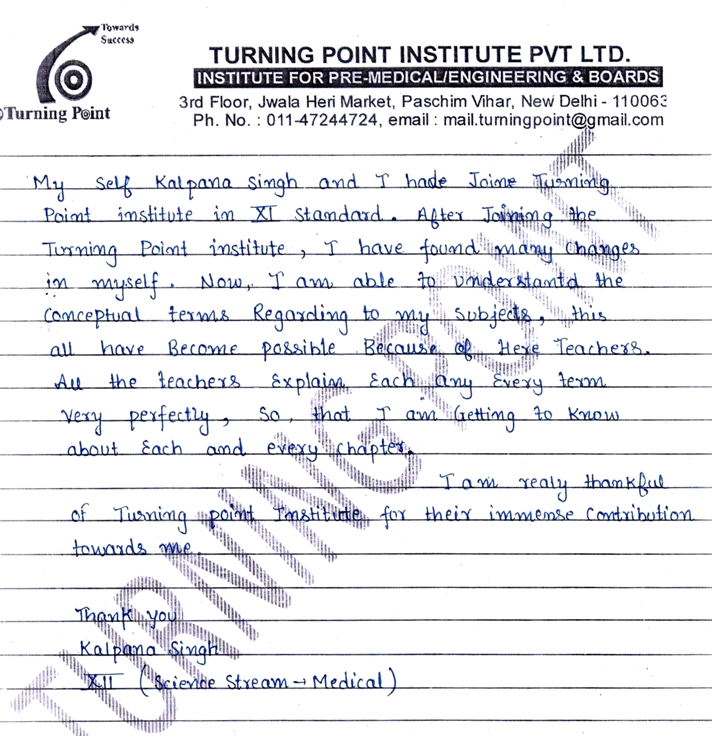 Towards
Success
Turning Point
TURNING POINT INSTITUTE PVT LTD.
INSTITUTE FOR PRE-MEDICAL/ENGINEERING & BOARDS
3rd Floor, Jwala Heri Market, Paschim Vihar, New Delhi - 110063
Ph. No. : 011-47244724, email : mail.turningpoint@gmail.com
My Self Kalpana Singh and I hade Joine Turning
Point institute in XI Standard. After Joining the
Turning Point institute, I have found many changes
in myself. Now, I am able to understantd the
Conceptual terms Regarding to my Subjects, this
all have Become possible Because of Here Teachers.
All the teachers Explain Each any Every term
very perfectly, So, that I am Getting to know
about Each and every chapter.
I am realy thankful
of Turning point Institute for their immense Contribution
towards me.
Thank you
Kalpana Singh
XII (Science Stream → Medical)
TURNING POINT